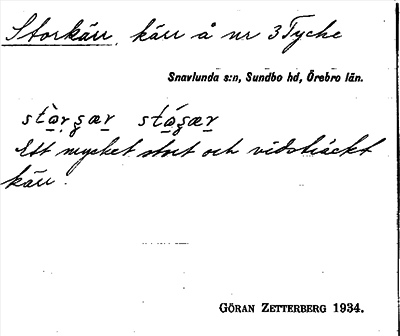 Storkärr, kärr å nr 3 Tycke
Snavlunda s:n, Sundbo hd, Örebro län.
Ett mycket stort och vidsträckt
kärr.
GÖRAN ZETTERBERG 1934.